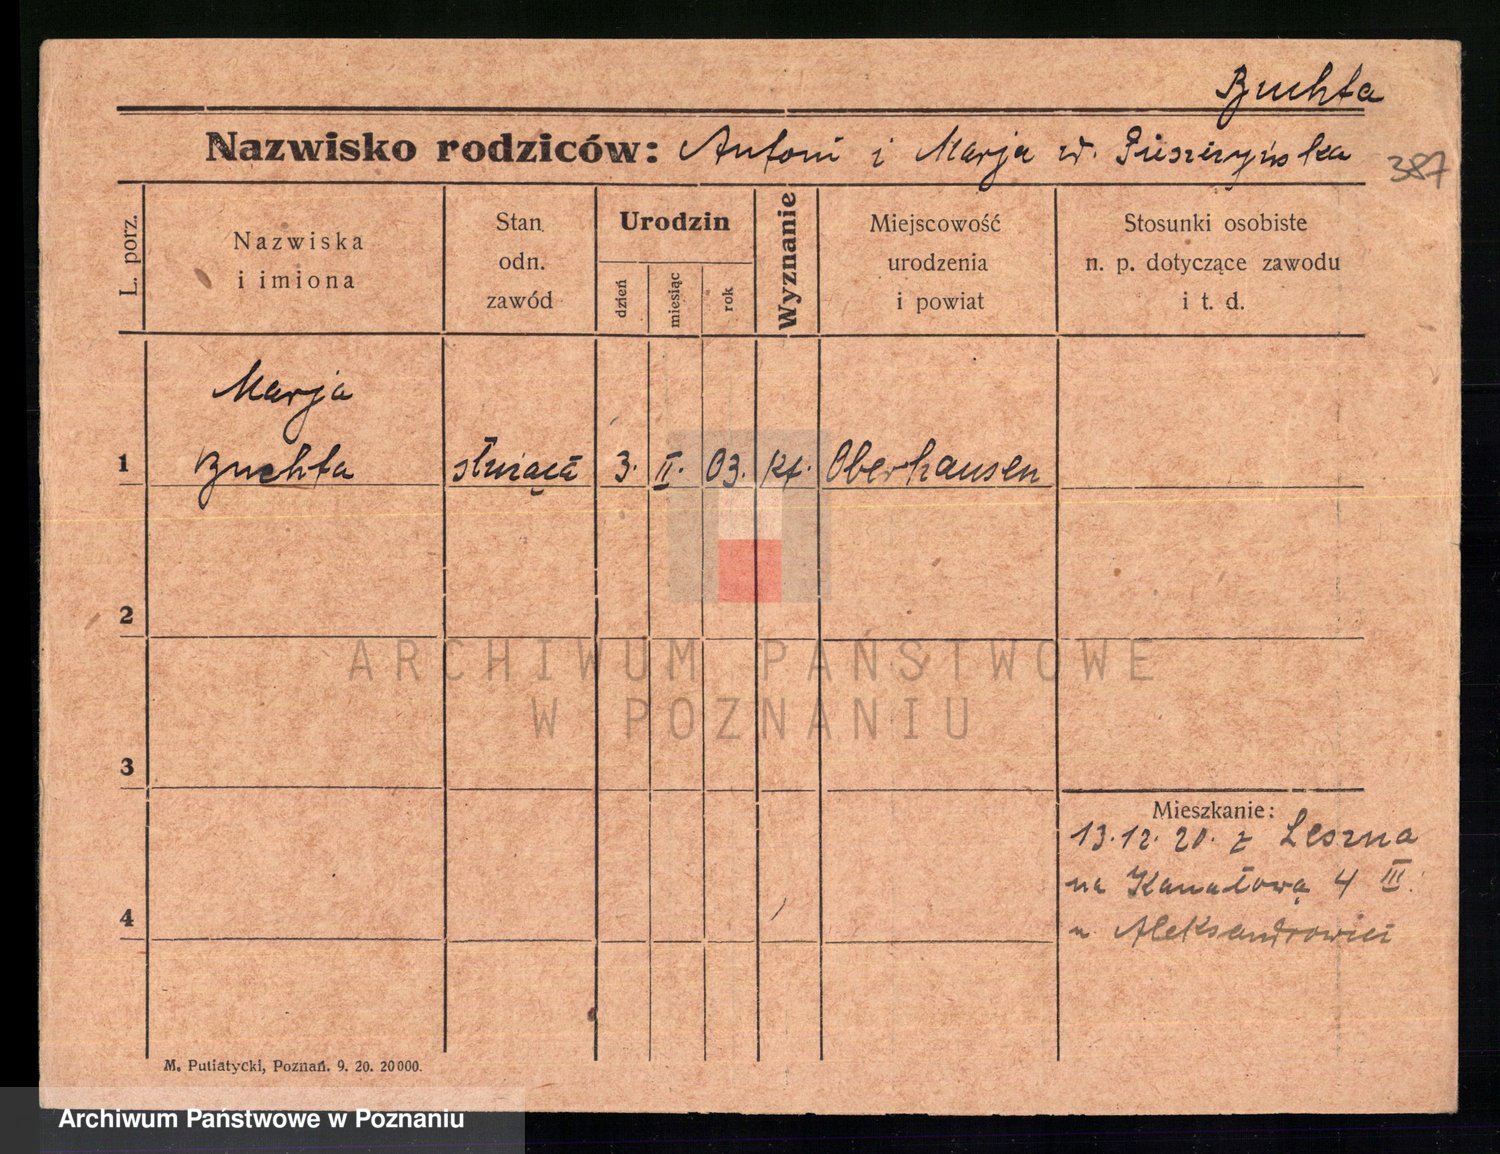 Buchta
Nazwisko rodziców: Antoni i Marja zd.
387
L. porz.
Nazwiska
i imiona
Stan
odn.
zawód
Urodzin
dzień
miesiąc
rok
Wyznanie
Miejscowość
urodzenia
i powiat
Stosunki osobiste
n. p. dotyczące zawodu
i t. d.
Marja
1 Buchta służąca 3. II. 03. kt. Oberhausen
2
ARCHIWUM PAŃSTWOWE
W POZNANIU
3
Mieszkanie:
13.12.20. z Leszna
na Kanałową 4 III.
4
u Aleksandrowicz
M. Putiatycki, Poznań. 9. 20. 20000.
Archiwum Państwowe w Poznaniu